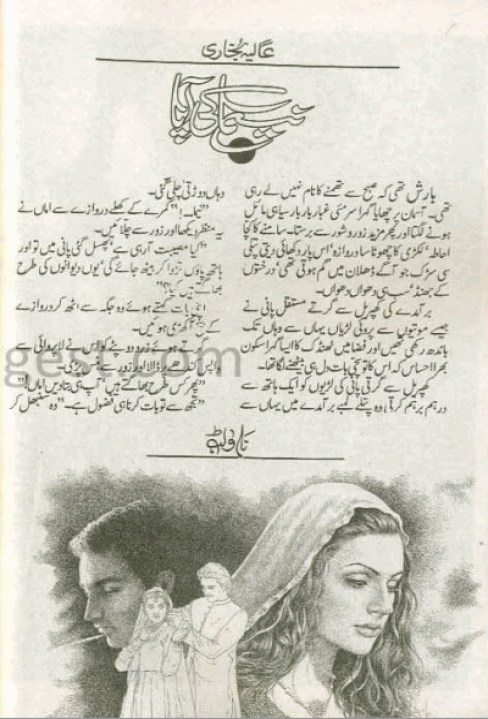 عالیہ بخاری
نیساں کی آپا
بارش تھی کہ صبح سے تھمنے کا نام نہیں لے رہی
تھی۔ آسمان پر چھایا گہرا سرمئی غبار بار بار سیاہی مائل
ہونے لگتا اور پھر مزید زور و شور سے برستا۔ سامنے کا کچا
احاطہ، لکڑی کا چھوٹا سا دروازہ، اس پار دکھائی دیتی پتلی
سی سڑک جو آگے ڈھلان میں گم ہوتی تھی، درختوں
کے جھنڈ، سب ہی دھواں دھواں۔
برآمدے کی کھپریل سے گرتے مستقل پانی نے
جیسے موتیوں سے پروئی لڑیاں یہاں سے وہاں تک
باندھ رکھی تھیں اور فضا میں ٹھنڈک کا ایسا گہرا سکون
بھرا احساس کہ اس کا تو بیٹھے بات دل ہی
کھپریل سے گرتی پانی کی لڑیوں کو ایک ہاتھ سے
درہم برہم کرتا وہ پتلے لمبے برآمدے میں یہاں سے
وہاں دوڑتی چلی گئی۔
"نیہا۔!" کمرے کے کھلے دروازے سے اماں نے
یہ منظر دیکھا اور زور سے چلائیں۔
"کیا مصیبت آ رہی ہے، پھسل گئی پانی میں تو اور
ہاتھ پاؤں تڑوا کر بیٹھ جائے گی، یوں دیوانوں کی طرح
بھاگتے ہیں کیا؟"
اپنی بات کہتے ہوئے وہ جگہ سے اٹھ کر دروازے
کے بیچ آ کھڑی ہوئیں۔
گرتے ہوئے زرد دوپٹے کو اس نے لاپروائی سے
واپس کندھے پر ڈالا اور زور سے ہنس پڑی۔
"پھر کس طرح بھاگتے ہیں، آپ ہی بتا دیں اماں!"
"تجھ سے تو بات کرنا ہی فضول ہے۔" وہ سنبھل کر
ناولٹ
gest.com